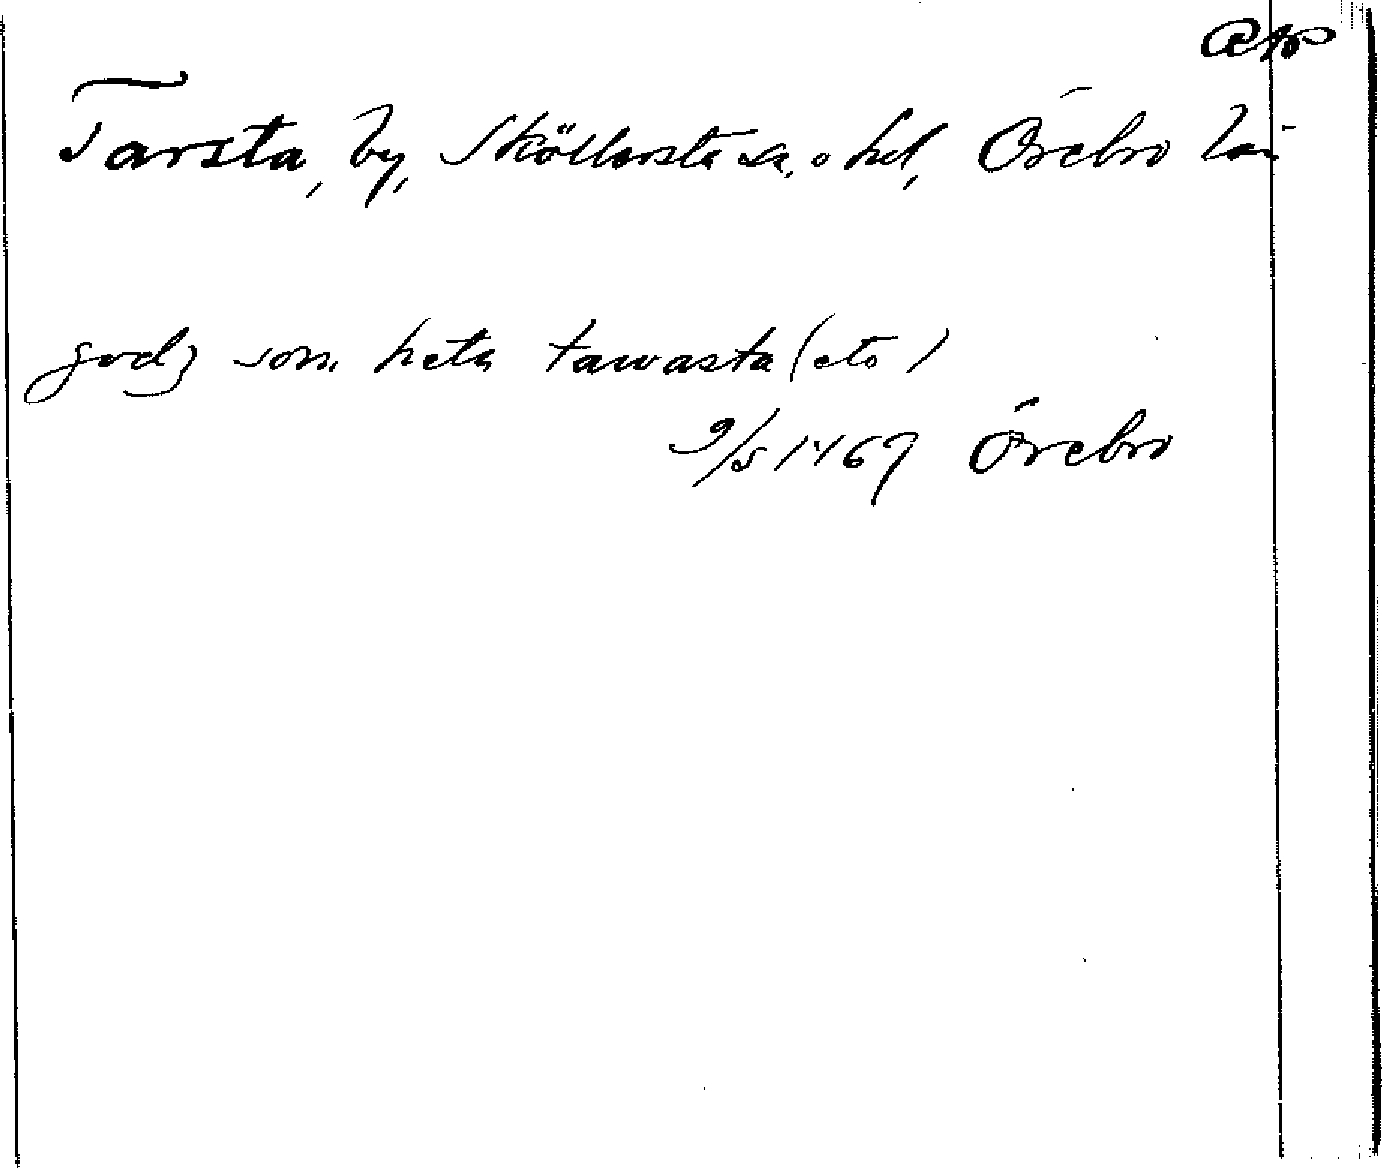 Tarsta, by, Sköllersta sn. o hd, Örebro län
godz som heta tawasta (etc)
9/5 1469 Örebro